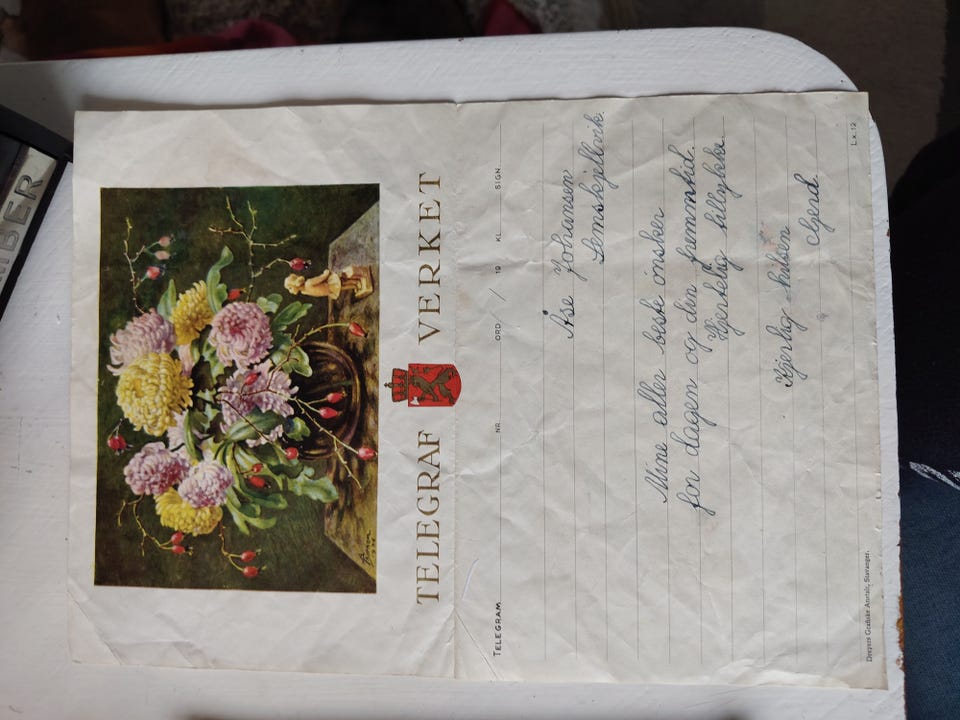 TELEGRAF VERKET
TELEGRAM NR. ORD / 19 KL. SIGN.
Åse Johansen
Lemskjellvik.
Mine aller beste ønsker
for dagen og din fremmtid.
Hjertelig tillykke.
Kjerlig hilsen
Gjerd.
Dreyers Grafiske Anstalt, Stavanger.
L x. 12
BER